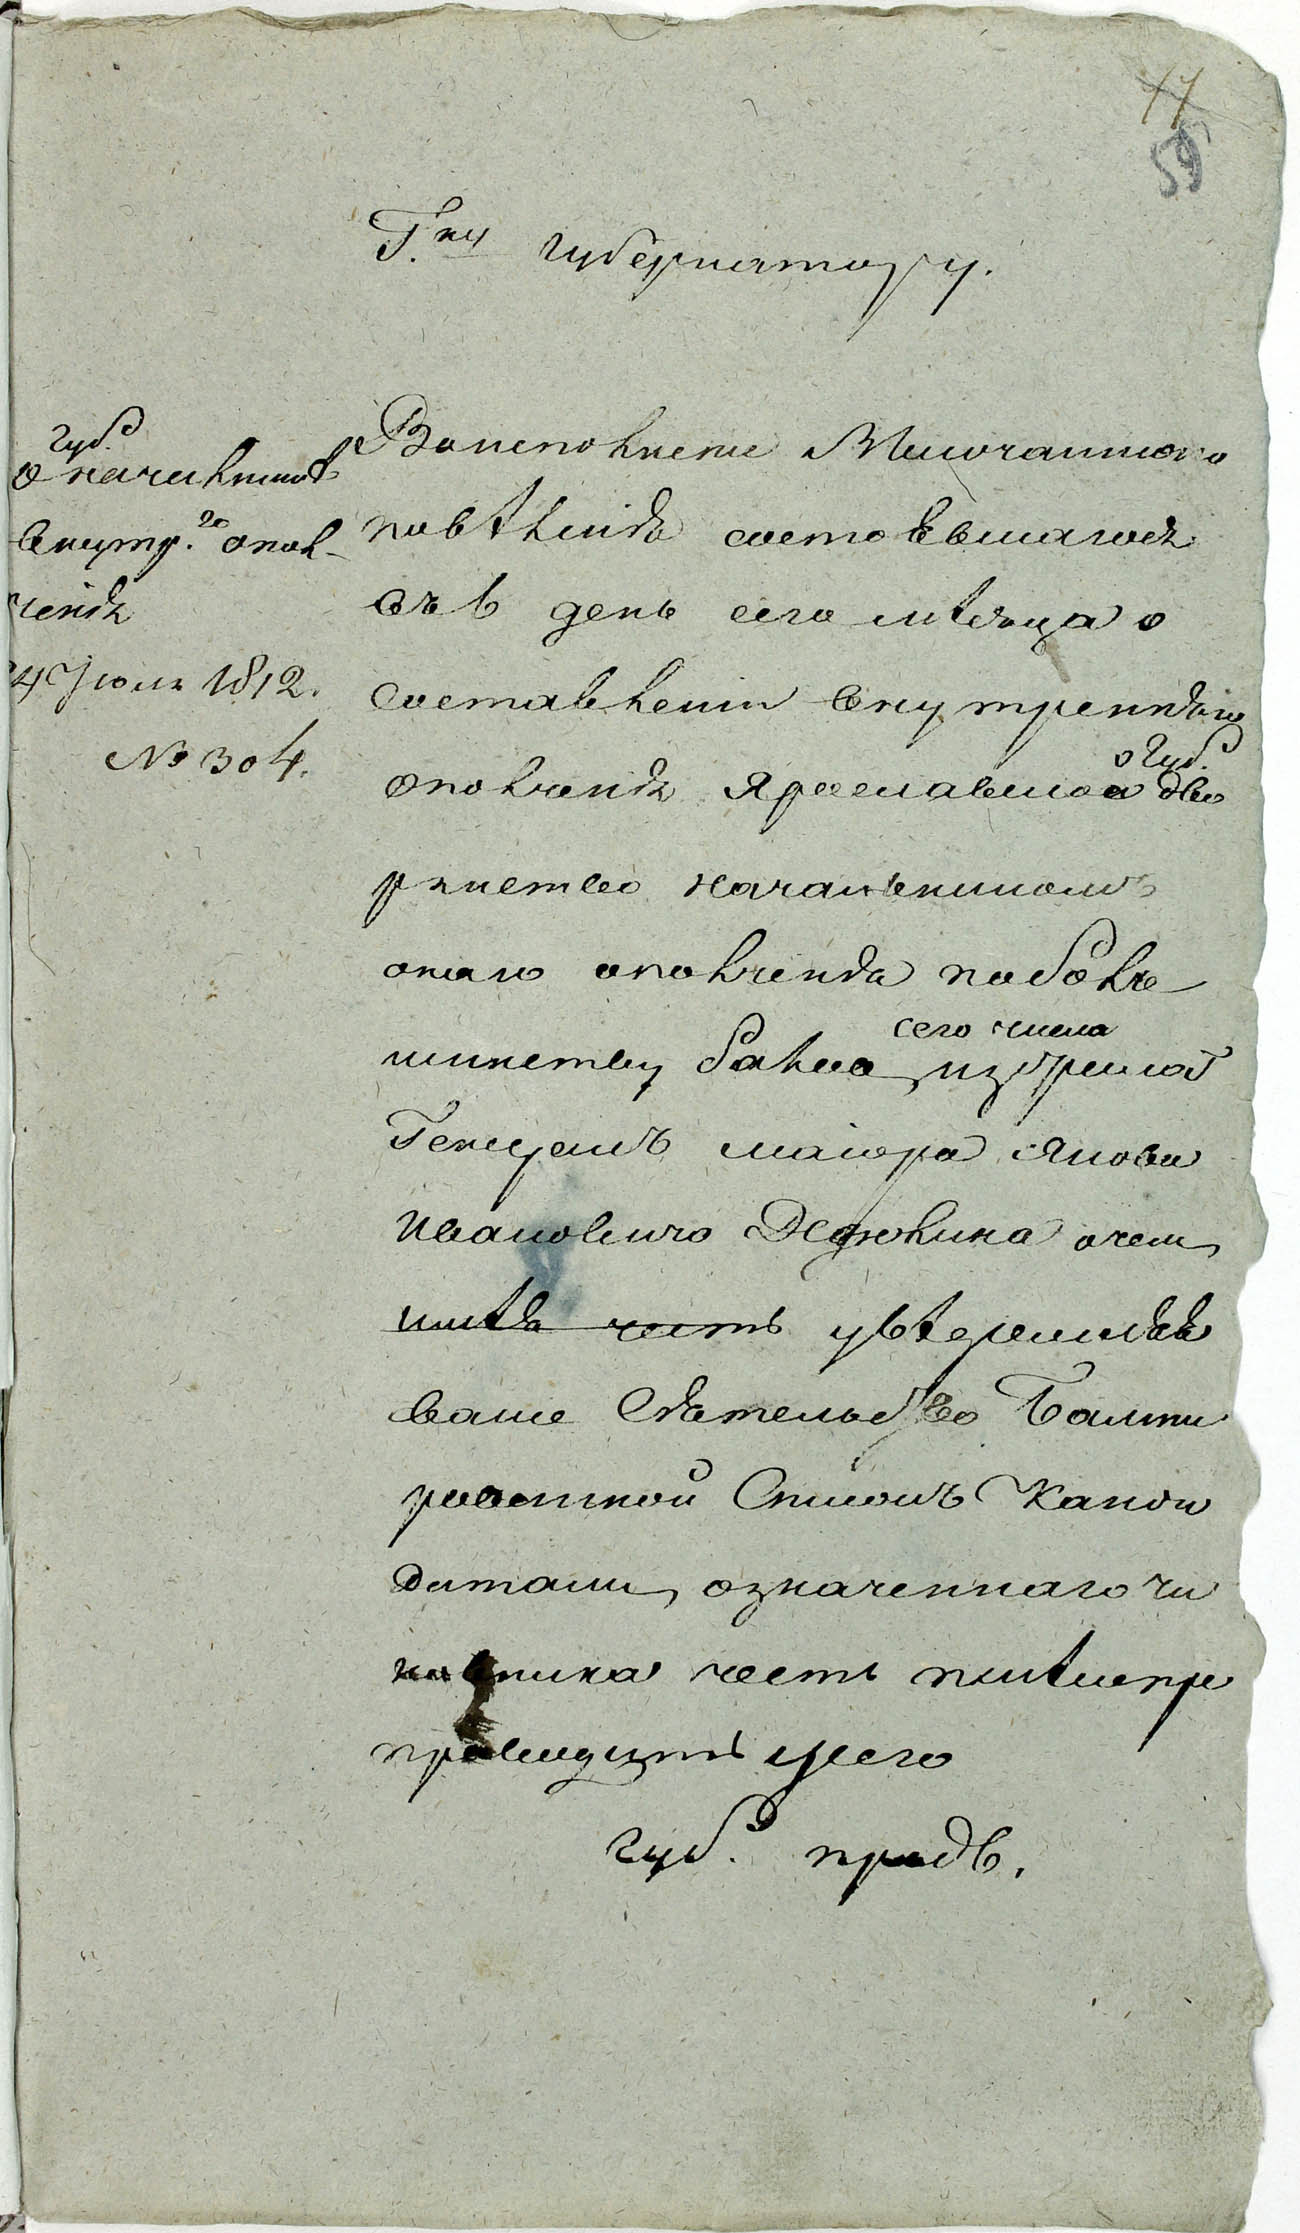 17
59
Г.ну Губернатору.
Губ.
О начальникѣ
внутр.го опол-
ченія
24 Июля 1812.
№ 304.
Воисполнение Высочаишаго
повѣленія состоявшагося
въ 6 день сего мѣсяца о
составлении внутренняго
ополченія Ярославской Губ. дво
рянство началникомъ
онаго ополчения по болше
шинству балов сего числа избрало
Генералъ маіора Якова
Ивановича Дедюлина очем
имѣя честь увѣдомляя
ваше Сіятельство Балти
ровочной Списокъ Канди
датамъ означеннаго чи
новника честь имѣю пре
проводить у сего
Губ. предв.